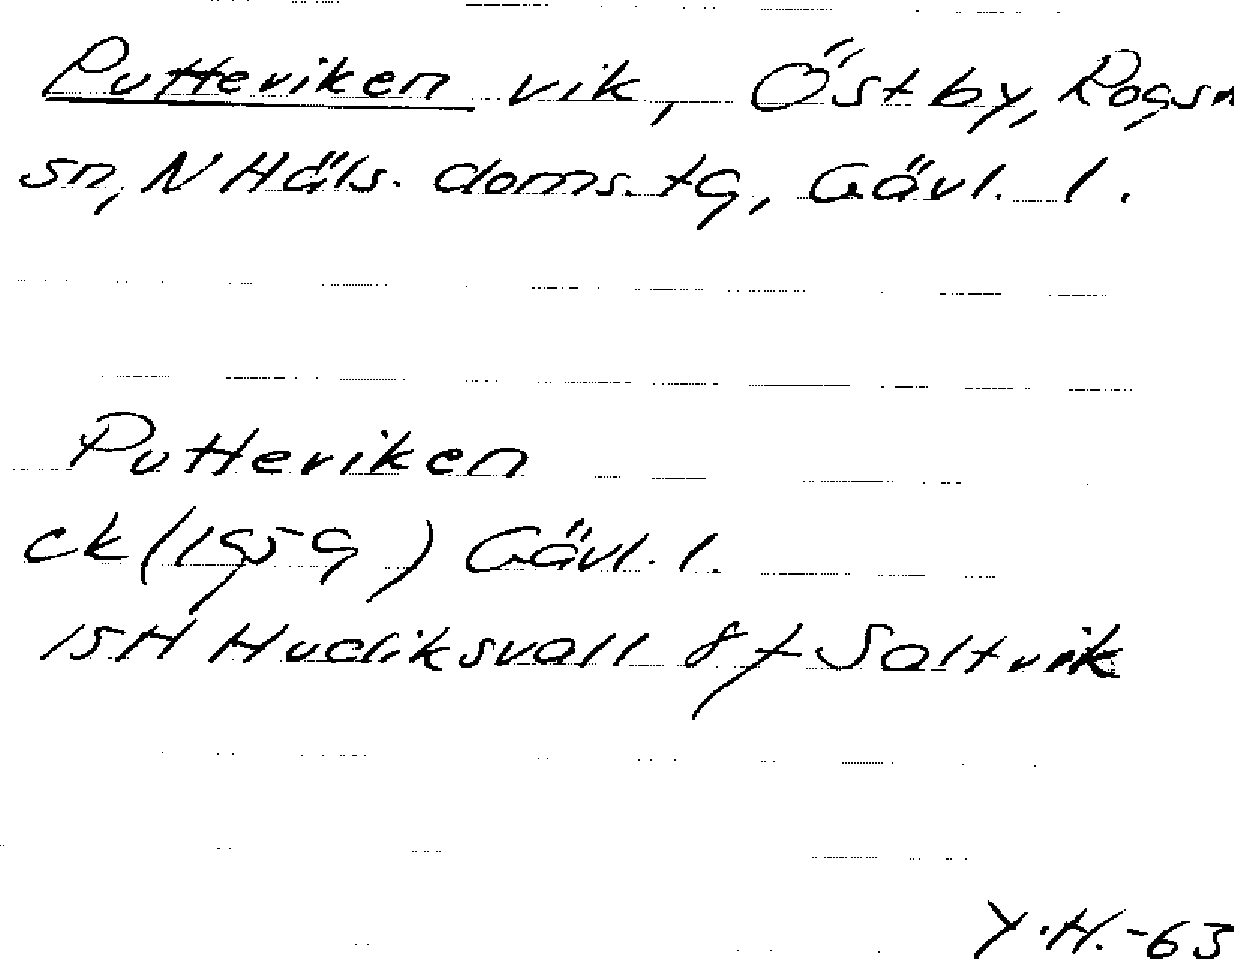 Putteviken vik, Östby, Rogsn
sn, N Häls. doms. tg, Gävl. l.
Putteviken
ck (1959) Gävl. l.
15H Hudiksvall 8f Saltvik
Y.H.-63